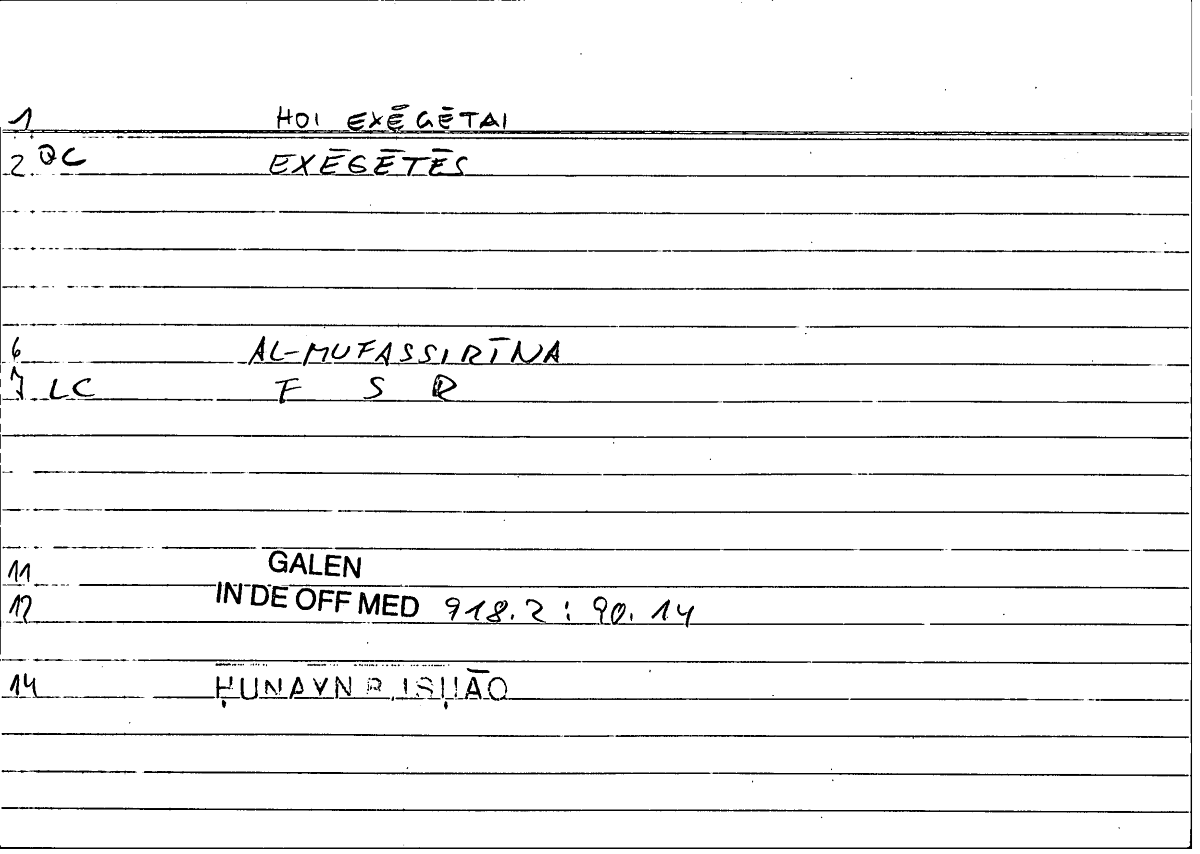 1. HOI EXĒGĒTAI
2. QC EXĒGĒTĒS
6 AL-MUFASSIRĪNA
7 LC F S R
11 GALEN
12 IN DE OFF MED 918.2 : 90.14
14 ḤUNAYN B. ISḤĀQ